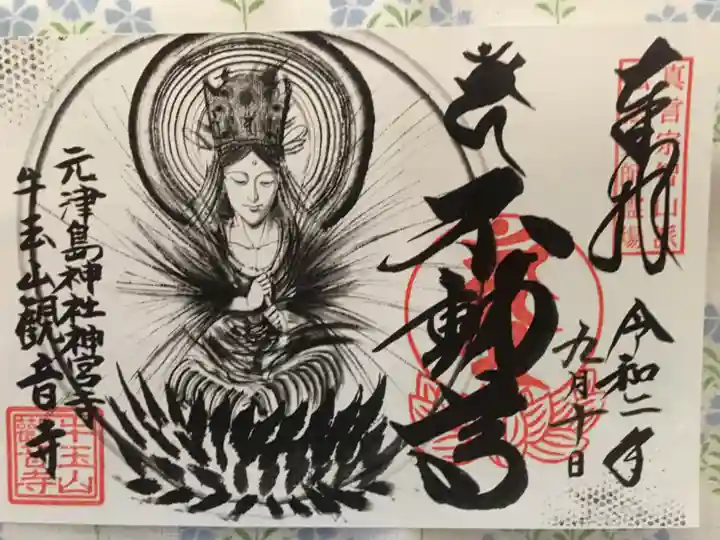 奉拝
真言宗智山派
令和二年
九月十日
不動尊
元津島神社神宮寺
牛玉山観音寺
牛玉山
観音寺